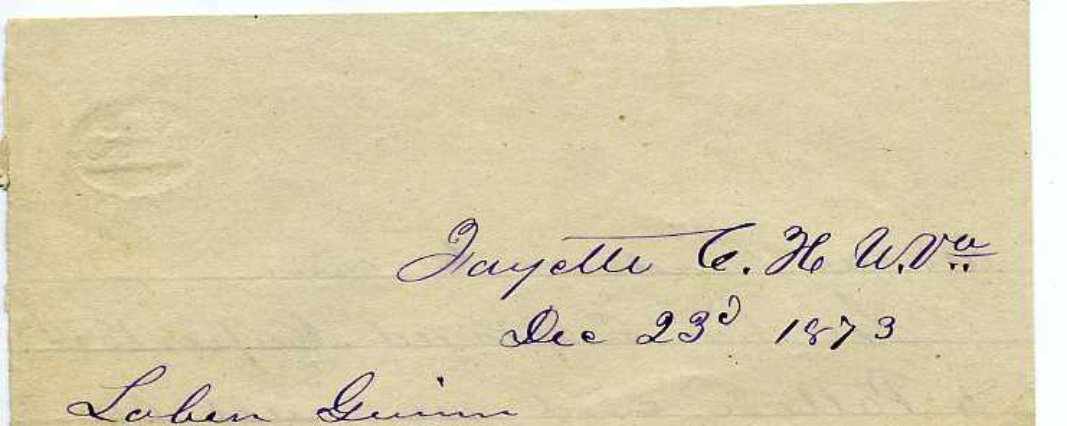 Fayette C. H W.Va
Dec 23d 1873
Laben Guinn